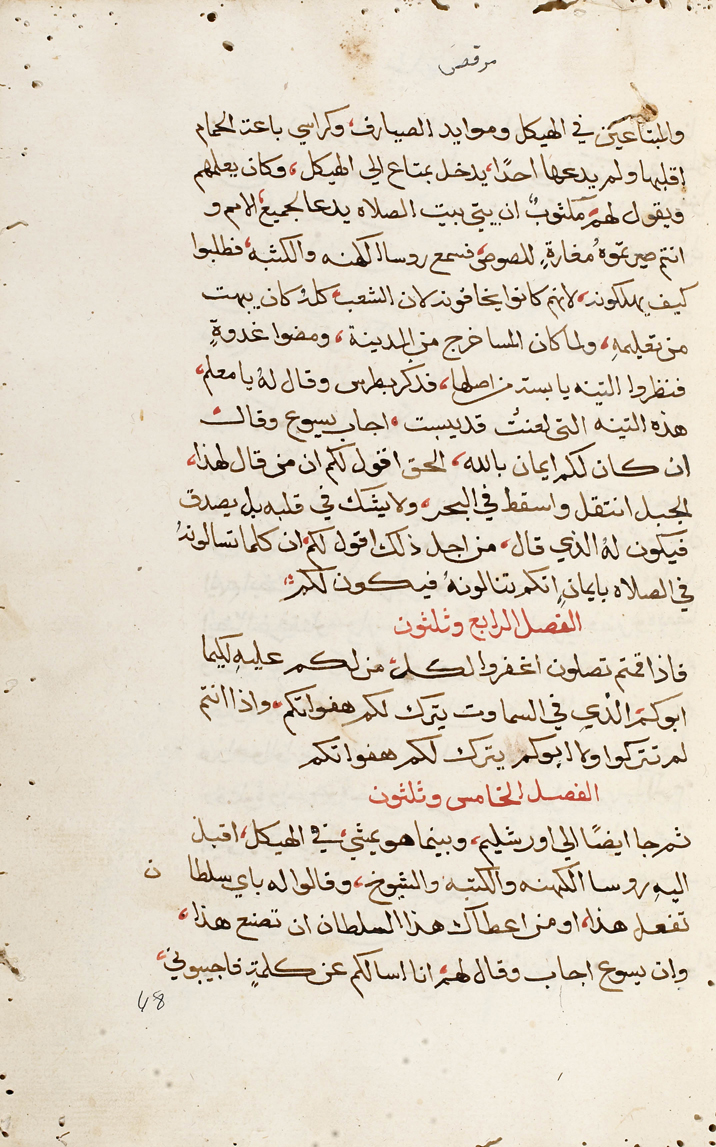 مرقص
والمبتاعين في الهيكل وموايد الصيارف، وكراسي باعة الحمام
اقلبها ولم يدعها احدًا، يدخل بمتاع الي الهيكل، وكان يعلمهم
ويقول لهم، مكتوبٌ ان بيتي بيت الصلاه يدعا لجميع الامم و
انتم صيرتموهُ مغارةِ للصوص، فسمع روسا الكهنه والكتبه، فطلبوا
كيف يهلكونه، لانهم كانوا يخافونه لان الشعب كلهُ كان يبهت
من تعليمهِ، ولما كان المسا خرج من المدينة، ومضوا غدوةٍ
فنظروا التينه يابسه من اصلها، فذكر بطرس وقال لهُ يا معلم،
هذه التينه التي لعنتُ قد يبست، اجاب يسوع وقال
ان كان لكم ايمان بالله، الحق اقول لكم ان من قال لهذا،
الجبل انتقل واسقط في البحر، ولا يشك في قلبه بل يصدق
فيكون لهُ الذي قال، من اجل ذلك اقول لكم، ان كلما تسالونهُ
في الصلاه بايمانٍ انكم تنالونهُ فيكون لكم
الفصل الرابع وثلثون
فاذا قمتم تصلون اغفروا لكل من لكم عليهِ لكيما
ابوكم الذي في السماوت يترك لكم هفواتكم، واذا انتم
لم تتركوا ولا ابوكم يترك لكم هفواتكم
الفصل الخامس وثلثون
ثم جا ايضًا الي اورشليم، وبينما هو يمشي، في الهيكل، اقبل
اليهِ روسا الكهنه والكتبه والشيوخ، وقالوا له باي سلطا ن
تفعل هذا، او من اعطاك هذا السلطان ان تصنع هذا،
وان يسوع اجاب وقال لهم انا اسالكم عن كلمةٍ فاجيبوني،
48